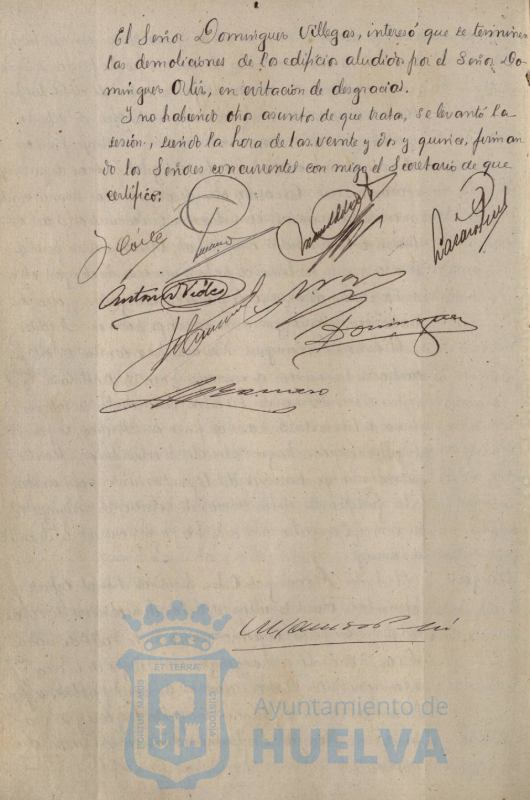 El Señor Domingues Villegas, interesó que se terminen
las demoliciones de los edificios aludidos por el Señor Do-
mingues Ortiz, en evitacion de desgracias.
Y no habiendo otro asunto de que tratar, se levantó la
sesión, siendo la hora de las veinte y dos y quince, firman-
do los Señores concurrentes con migo el Secretario de que
certifico.
Antonio Vides
Domingues
ET TERRAE
PORTUS MARIS
CUSTODIA
Ayuntamiento de
HUELVA